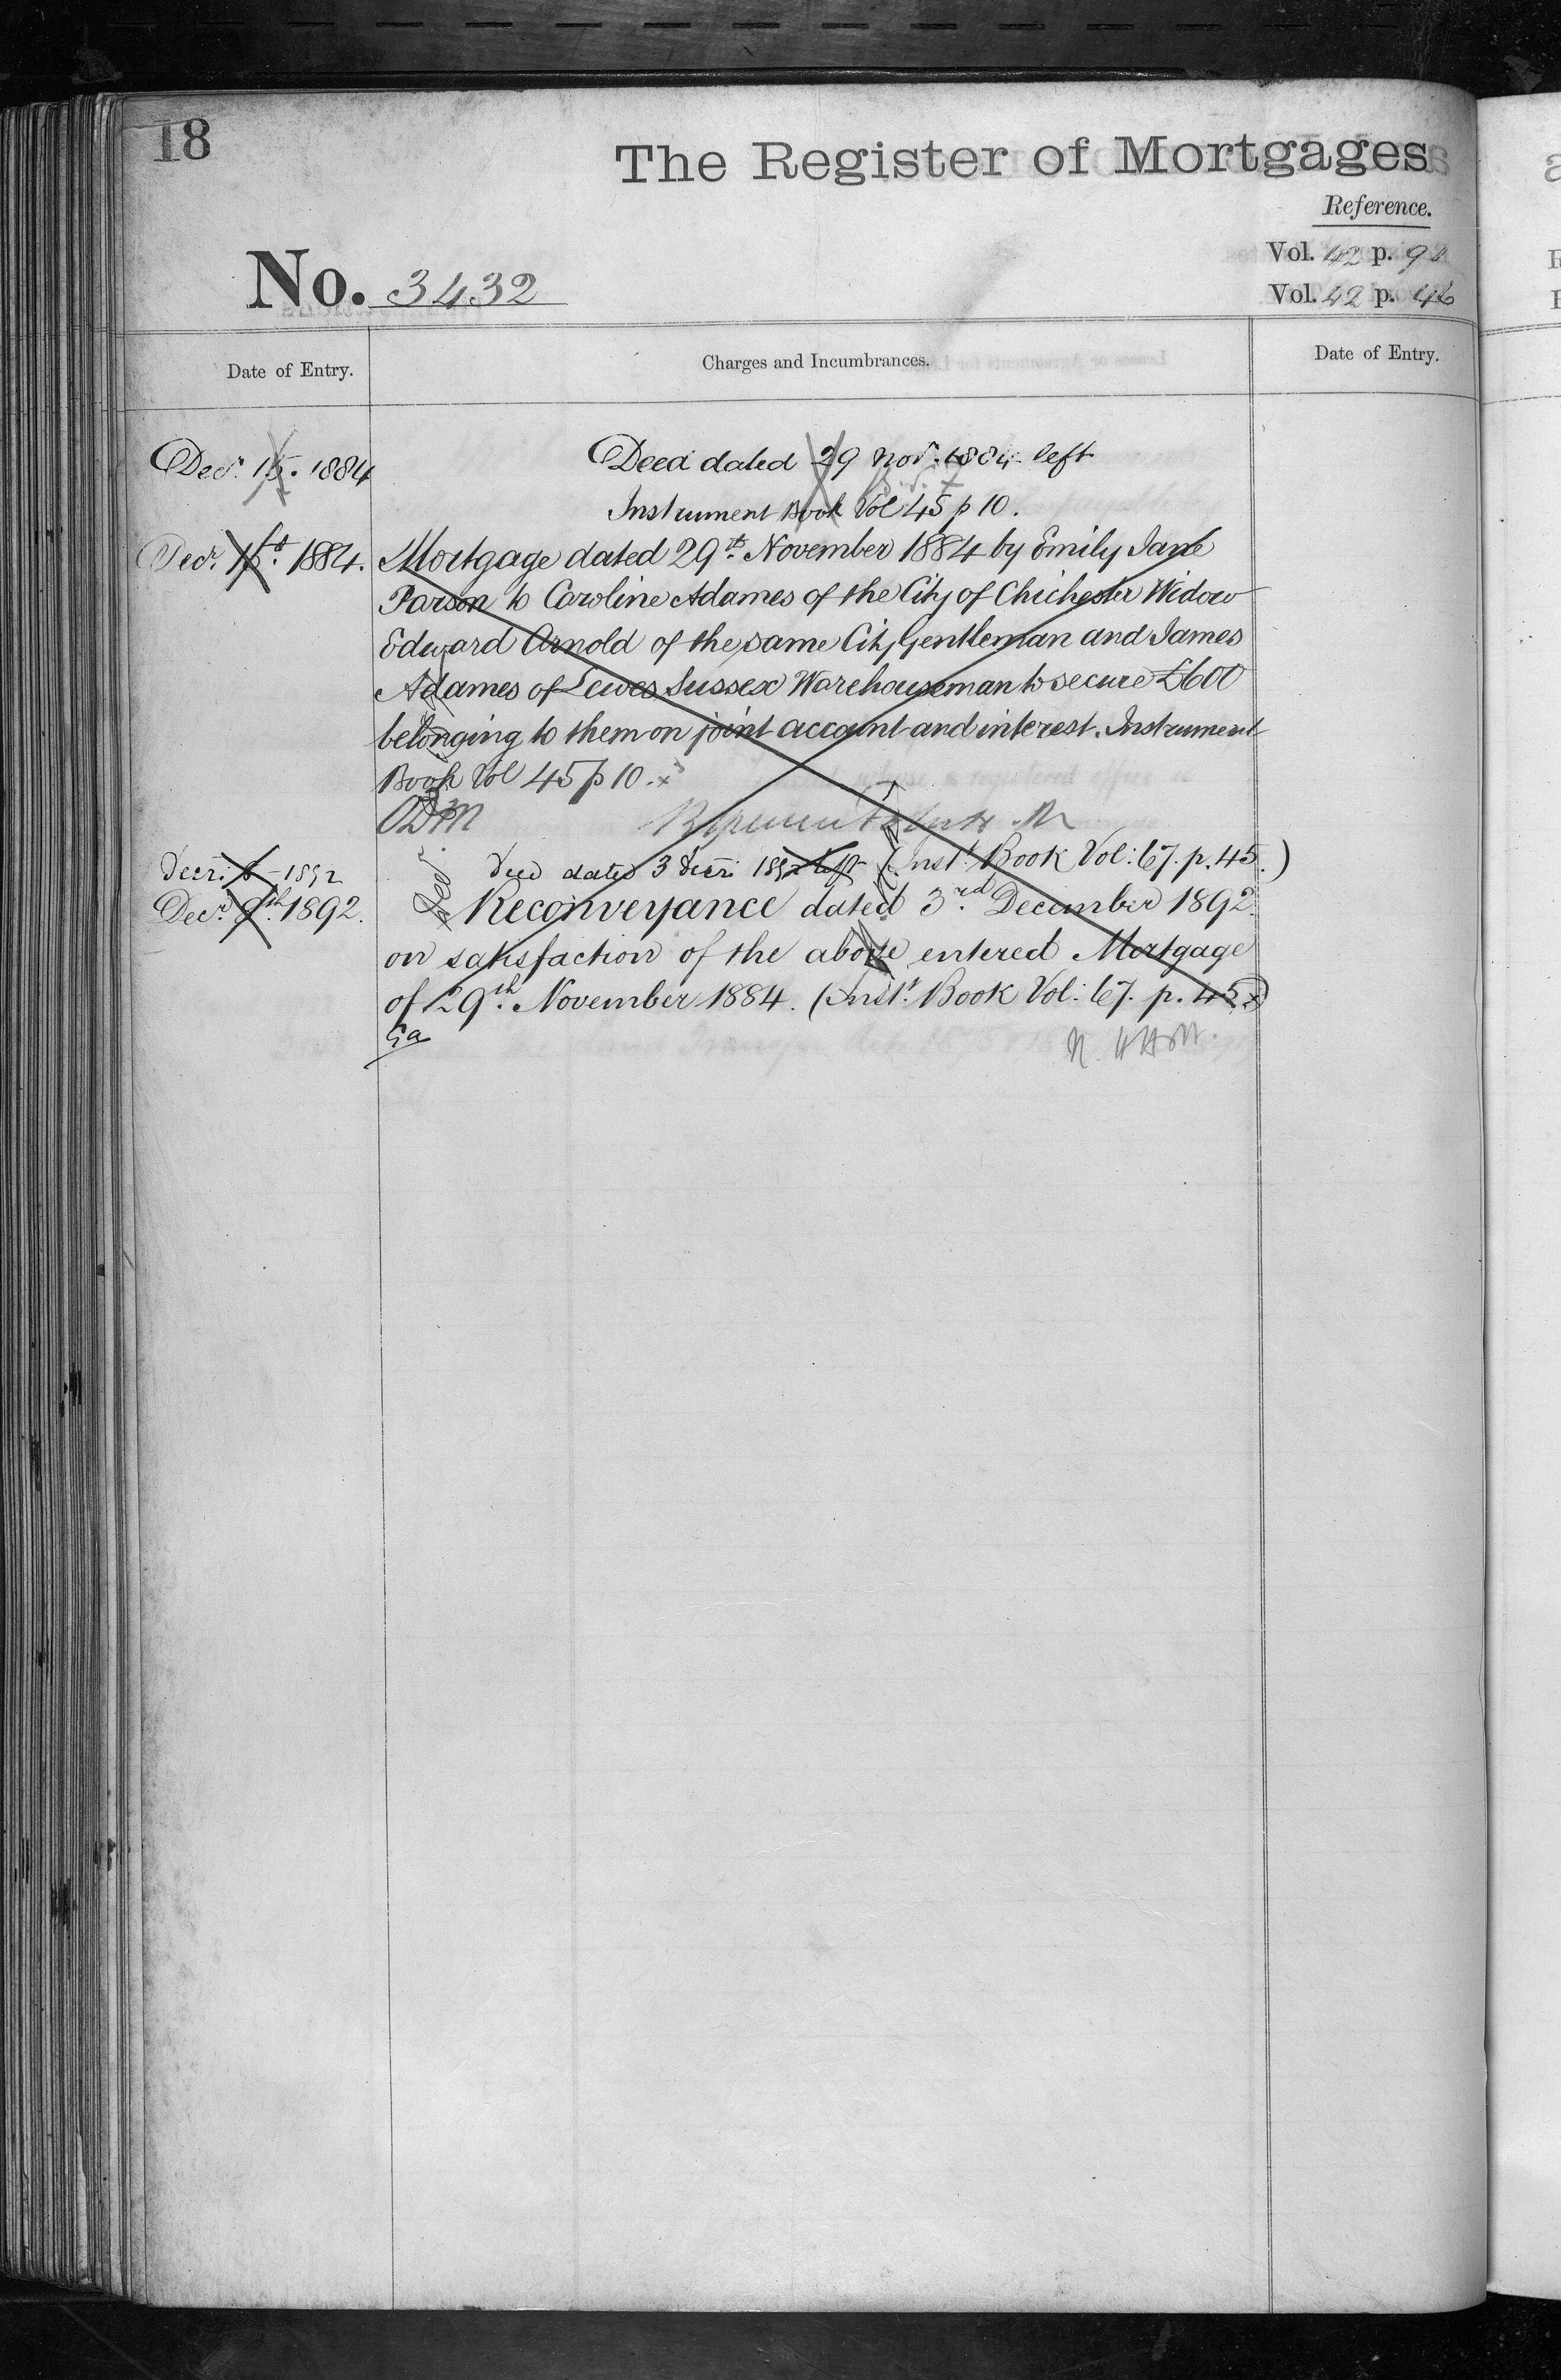 18
The Register of Mortgages
Reference.
Vol. 42 p. 90
No. 3432
Vol. 42 p. 46
Date of Entry.
Charges and Incumbrances.
Date of Entry.
Decr. 15. 1884
Deed dated 29 Novr. 1884 left
Instrument Book Vol 45 p 10.
Decr. 1884. Mortgage dated 29th November 1884 by Emily Jane
Parson to Caroline Adames of the City of Chichester Widow
Edward Arnold of the same City Gentleman and James
Adames of Lewes Sussex Warehouseman to secure £600
belonging to them on joint account and interest. Instrument
Book Vol 45 p 10.
Decr: 1892 Deed dated 3 Decr: 1892 left (Inst: Book Vol: 67. p. 45.)
Decr. 9th. 1892. Reconveyance dated 3rd December 1892.
on satisfaction of the above entered Mortgage
of 29th. November 1884. (Inst: Book Vol: 67. p. 45.)